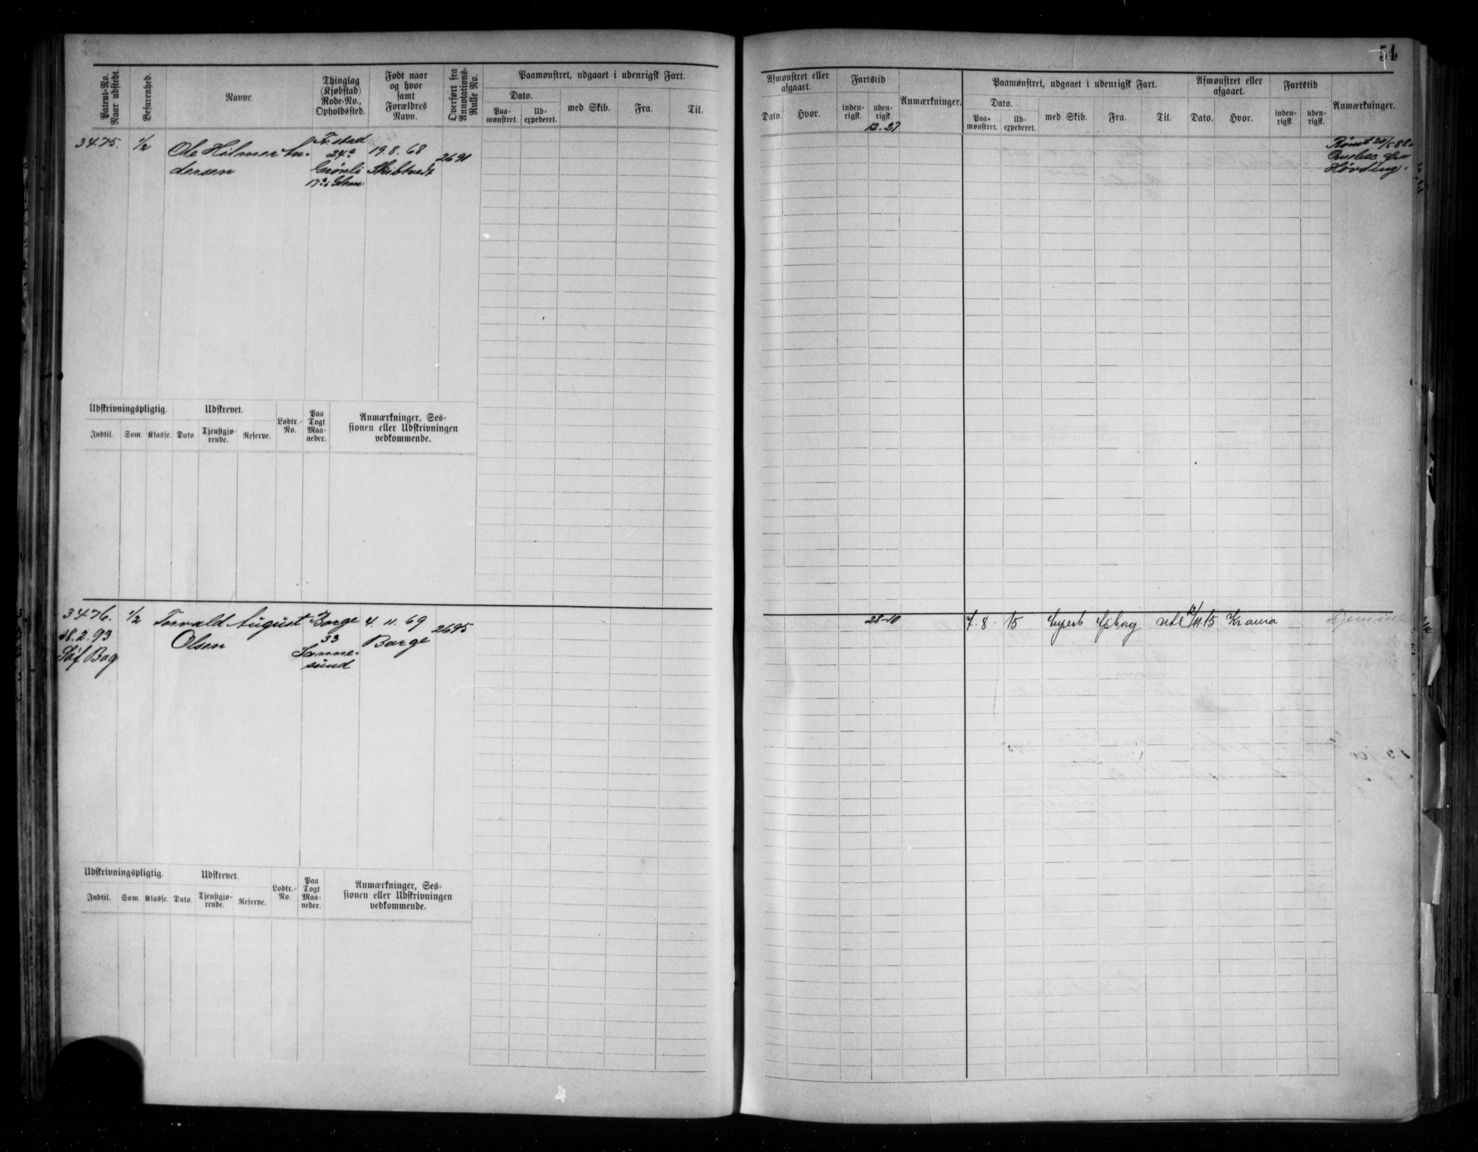 54
Patent-No. Naar udstedt.
Befarenhed.
Navne.
Thinglag (Kjøbstad) Rode-No., Opholdssted.
Født naar og hvor samt Forældres Navn.
Overført fra Annotations-Rulle No.
Paamønstret, udgaaet i udenrigsk Fart.
Dato.
Paamønstret.
Udexpederet.
med Skib.
Fra.
Til.
3475. 1/2 Ole Hilmer An- 19.8.68 2691
dersen
24a
Skibtvedt
Udskrivningspligtig.
Udskrevet.
Lodtr.-No.
Paa Togt Maaneder.
Anmærkninger, Ses-
sionen eller Udskrivningen
vedkommende.
Indtil. Som. Klasse. Dato. Tjenstgjørende. Reserve.
3476. 1/2 Torvald August Borge 4.11.69 2695
18.2.93 Olsen 33 Borge
Sanne-
sund
Udskrivningspligtig.
Udskrevet.
Lodtr.-No.
Paa Togt Maaneder.
Anmærkninger, Ses-
sionen eller Udskrivningen
vedkommende.
Indtil. Som. Klasse. Dato. Tjenstgjørende. Reserve.
Afmønstret eller afgaaet.
Fartstid
Dato. Hvor. indenrigsk. udenrigsk. Anmærkninger.
Paamønstret, udgaaet i udenrigsk Fart.
Afmønstret eller afgaaet.
Fartstid
Dato.
Paamønstret. Udexpederet. med Skib. Fra. Til. Dato. Hvor. indenrigsk. udenrigsk. Anmærkninger.
12-27
Rømt
28-10 7.8 15 11 15 Krania